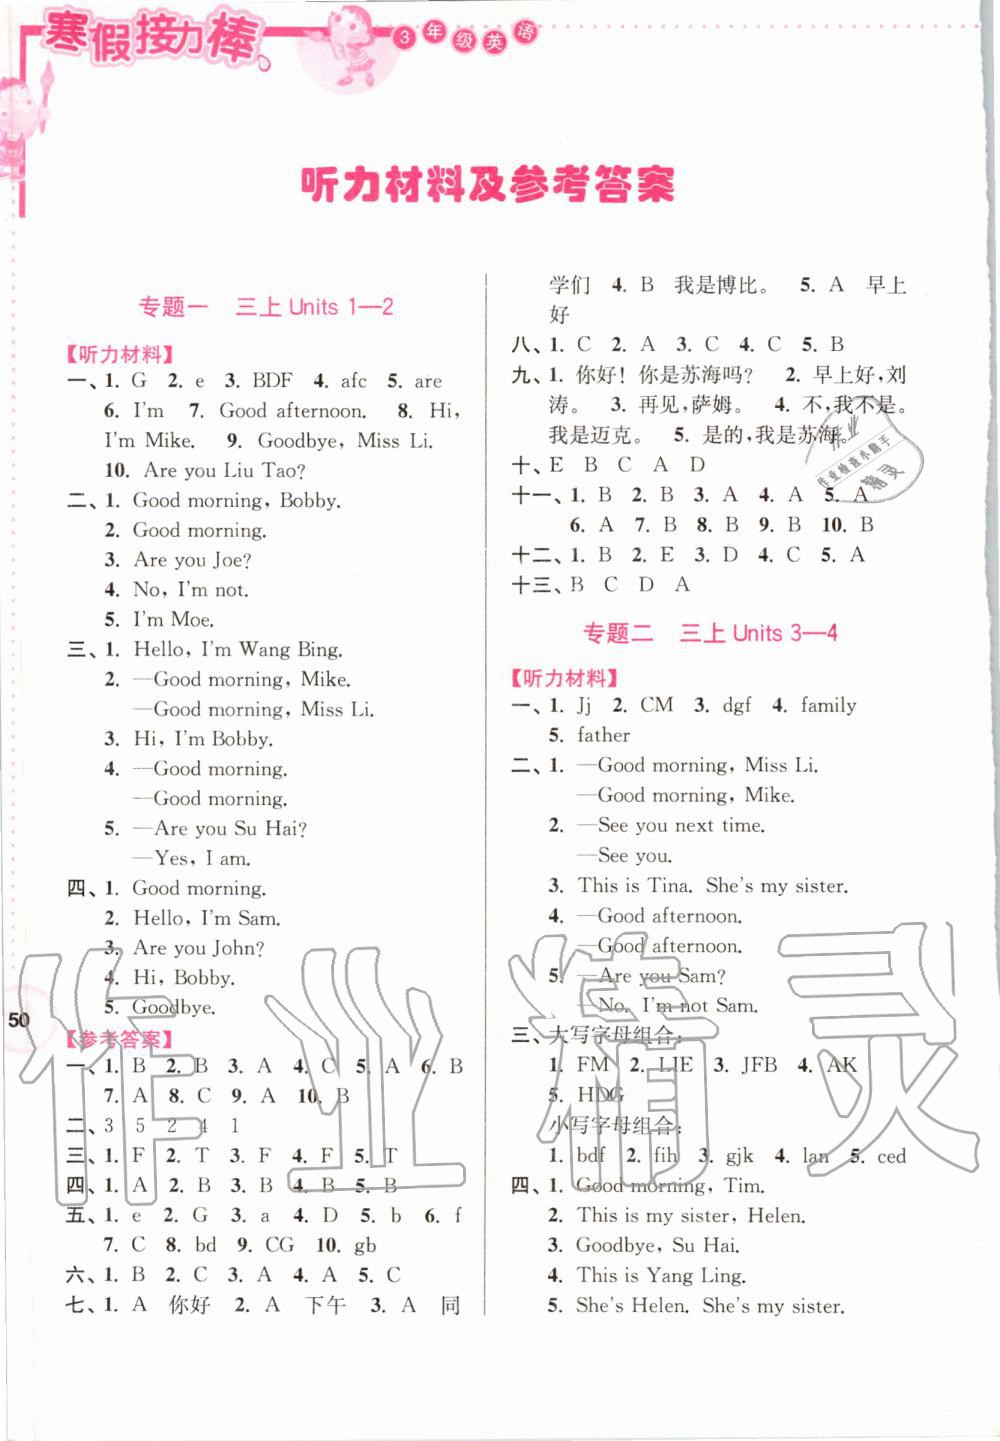 寒假接力棒
3年级英语
听力材料及参考答案
专题一 三上 Units 1—2
【听力材料】
一、1. G 2. e 3. BDF 4. afc 5. are
6. I'm 7. Good afternoon. 8. Hi,
I'm Mike. 9. Goodbye, Miss Li.
10. Are you Liu Tao?
二、1. Good morning, Bobby.
2. Good morning.
3. Are you Joe?
4. No, I'm not.
5. I'm Moe.
三、1. Hello, I'm Wang Bing.
2. —Good morning, Mike.
—Good morning, Miss Li.
3. Hi, I'm Bobby.
4. —Good morning.
—Good morning.
5. —Are you Su Hai?
—Yes, I am.
四、1. Good morning.
2. Hello, I'm Sam.
3. Are you John?
4. Hi, Bobby.
5. Goodbye.
【参考答案】
一、1. B 2. B 3. A 4. C 5. A 6. B
7. A 8. C 9. A 10. B
二、3 5 2 4 1
三、1. F 2. T 3. F 4. F 5. T
四、1. A 2. B 3. B 4. B 5. B
五、1. e 2. G 3. a 4. D 5. b 6. f
7. C 8. bd 9. CG 10. gb
六、1. B 2. C 3. A 4. A 5. C
七、1. A 你好 2. A 下午 3. A 同
学们 4. B 我是博比。 5. A 早上
好
八、1. C 2. A 3. C 4. C 5. B
九、1. 你好!你是苏海吗? 2. 早上好,刘
涛。 3. 再见,萨姆。 4. 不,我不是。
我是迈克。 5. 是的,我是苏海。
十、E B C A D
十一、1. B 2. B 3. A 4. A 5. A
6. A 7. B 8. B 9. B 10. B
十二、1. B 2. E 3. D 4. C 5. A
十三、B C D A
专题二 三上 Units 3—4
【听力材料】
一、1. Jj 2. CM 3. dgf 4. family
5. father
二、1. —Good morning, Miss Li.
—Good morning, Mike.
2. —See you next time.
—See you.
3. This is Tina. She's my sister.
4. —Good afternoon.
—Good afternoon.
5. —Are you Sam?
—No, I'm not Sam.
三、大写字母组合:
1. FM 2. LIE 3. JFB 4. AK
5. HDG
小写字母组合:
1. bdf 2. fih 3. gjk 4. lan 5. ced
四、1. Good morning, Tim.
2. This is my sister, Helen.
3. Goodbye, Su Hai.
4. This is Yang Ling.
5. She's Helen. She's my sister.
50
作业
作业检查小助手
精灵
作业精灵